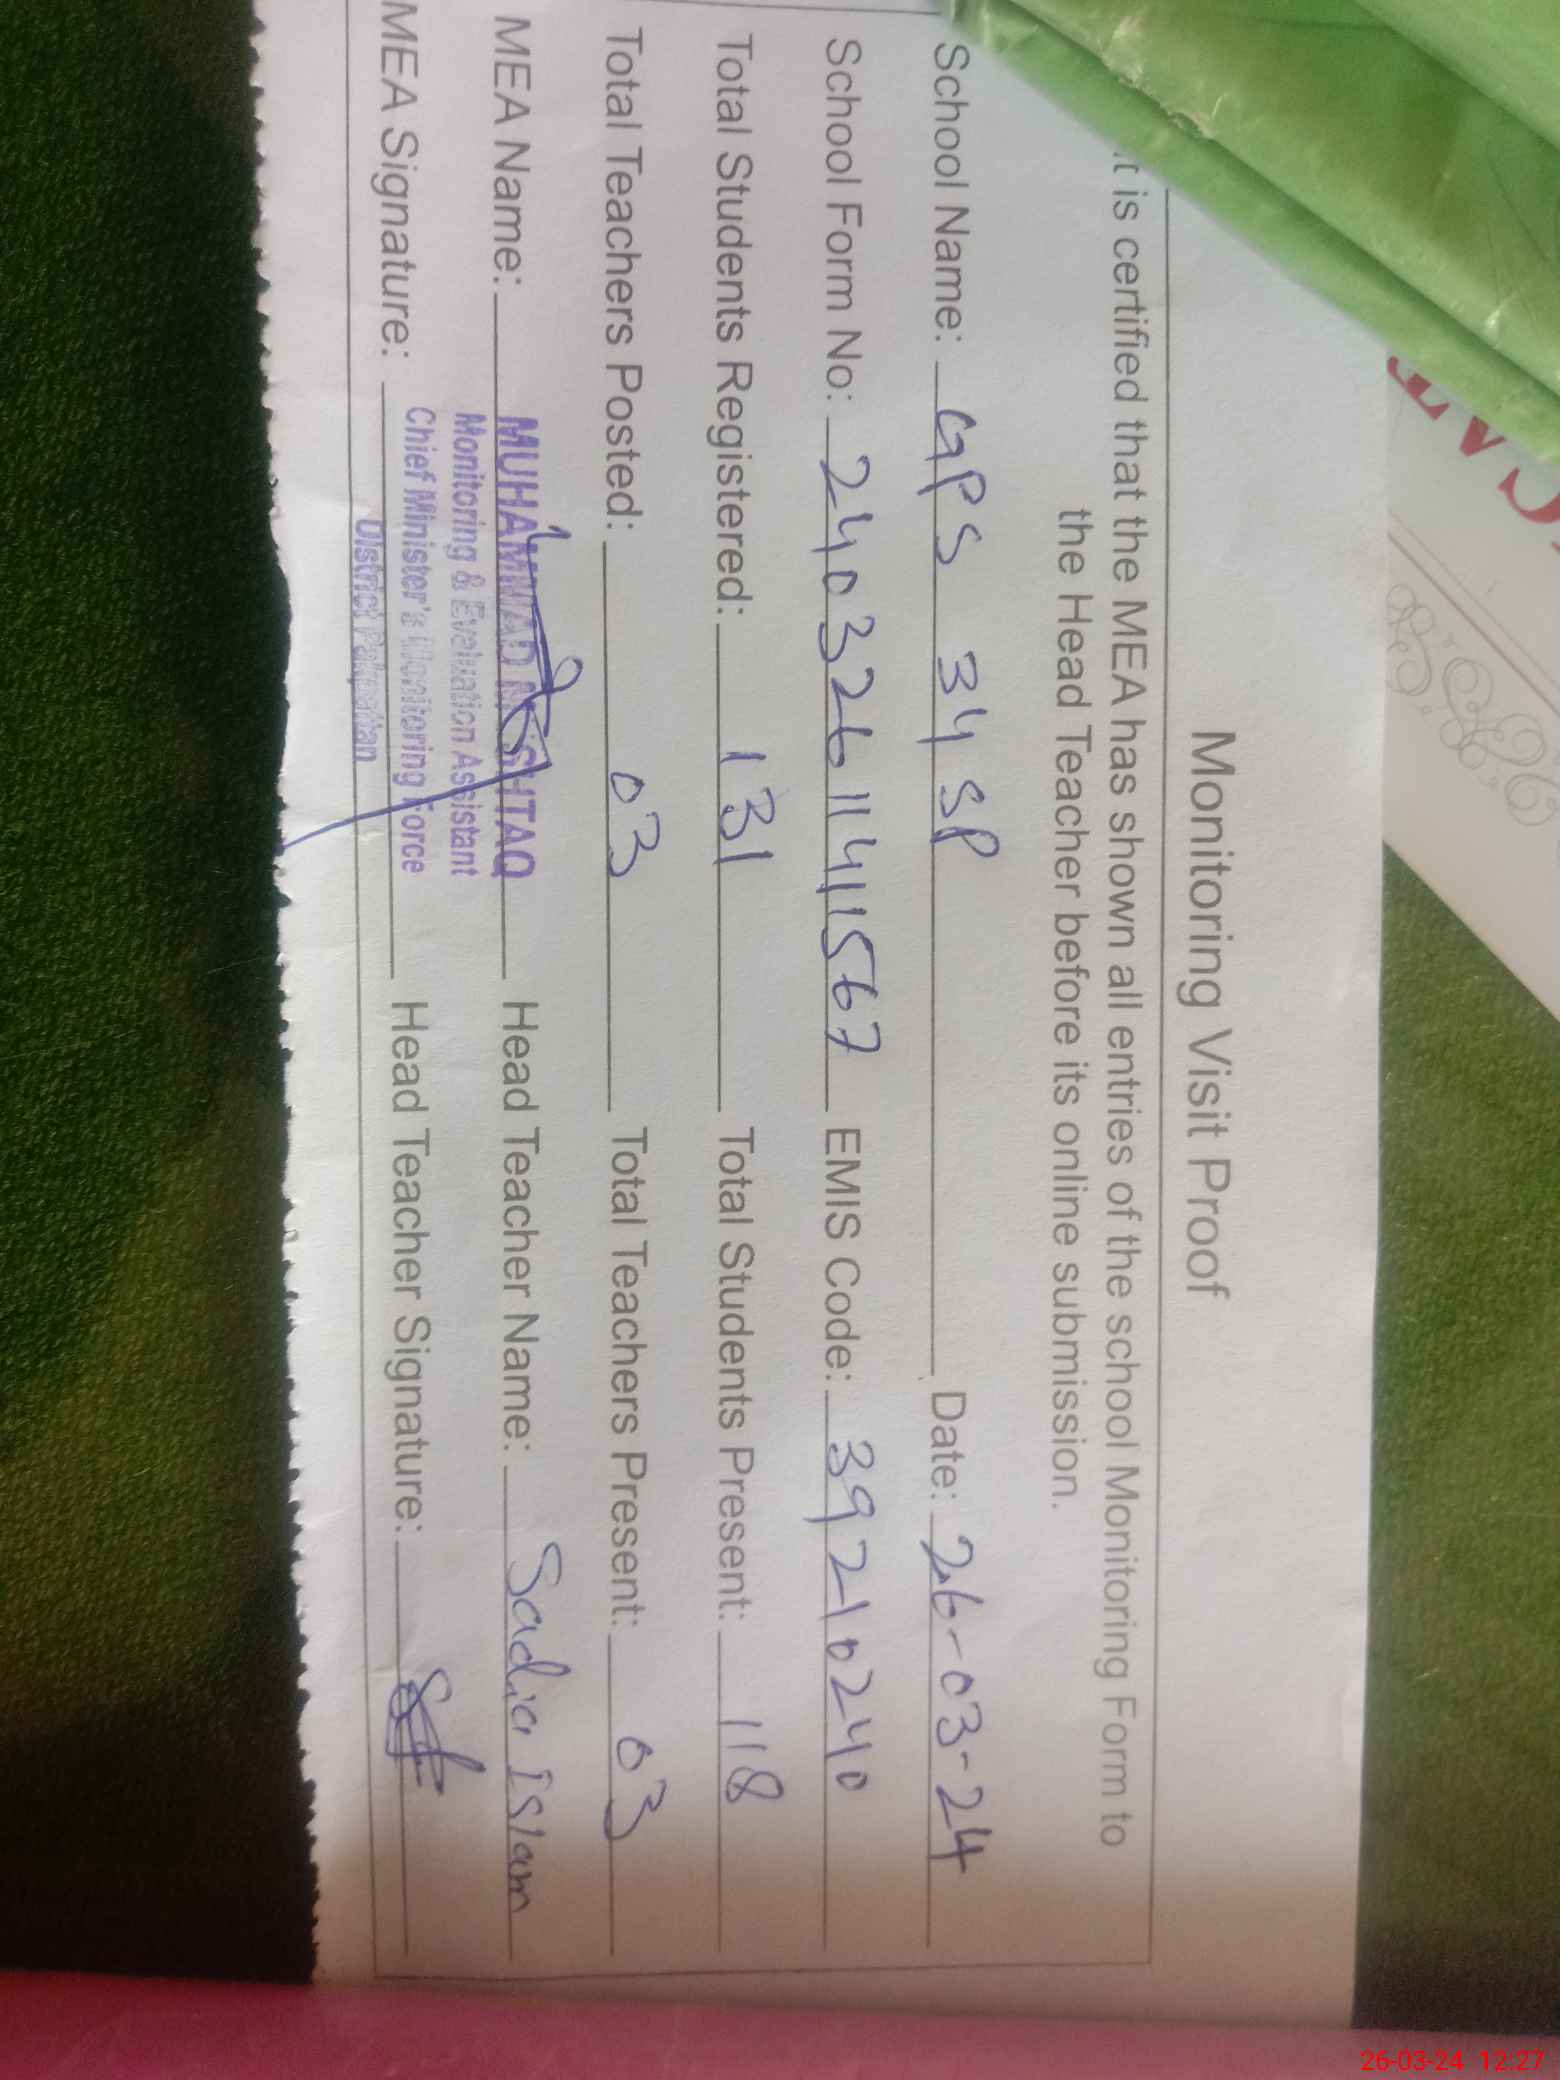 Monitoring Visit Proof
It is certified that the MEA has shown all entries of the school Monitoring Form to
the Head Teacher before its online submission.
School Name: GPS 34 SP Date: 26-03-24
School Form No: 2403261141567 EMIS Code: 39210240
Total Students Registered: 131 Total Students Present: 118
Total Teachers Posted: 03 Total Teachers Present: 03
MEA Name: MUHAMMAD MUSHTAQ Head Teacher Name: Sadia Islam
Monitoring & Evaluation Assistant
Chief Minister's Monitoring Force
District Pakpattan
MEA Signature: Head Teacher Signature:
26-03-24 12:27